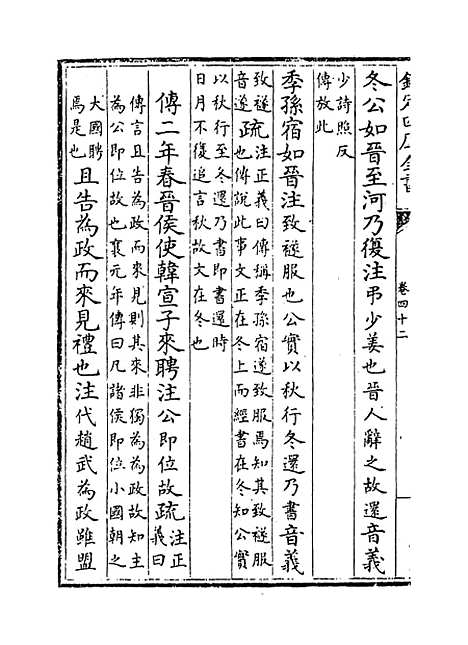 欽定四庫全書
卷四十二
冬公如晉至河乃復注弔少姜也晉人辭之故還音義
少詩照反
傳放此
季孫宿如晉注致襚服也公實以秋行冬還乃書音義
致襚
音遂
疏
注正義曰傳稱季孫宿遂致服焉知其致襚服
也傳說此事文正在冬上而經書在冬知公實
以秋行至冬還乃書即書還時
日月不復追言秋故文在冬也
傳二年春晉侯使韓宣子來聘注公即位故疏
注正
義曰
傳言且告為政而來見則其來非獨為為政故知主
為公即位故也襄元年傳曰凡諸侯即位小國朝之
大國聘
焉是也
且告為政而來見禮也注代趙武為政雖盟